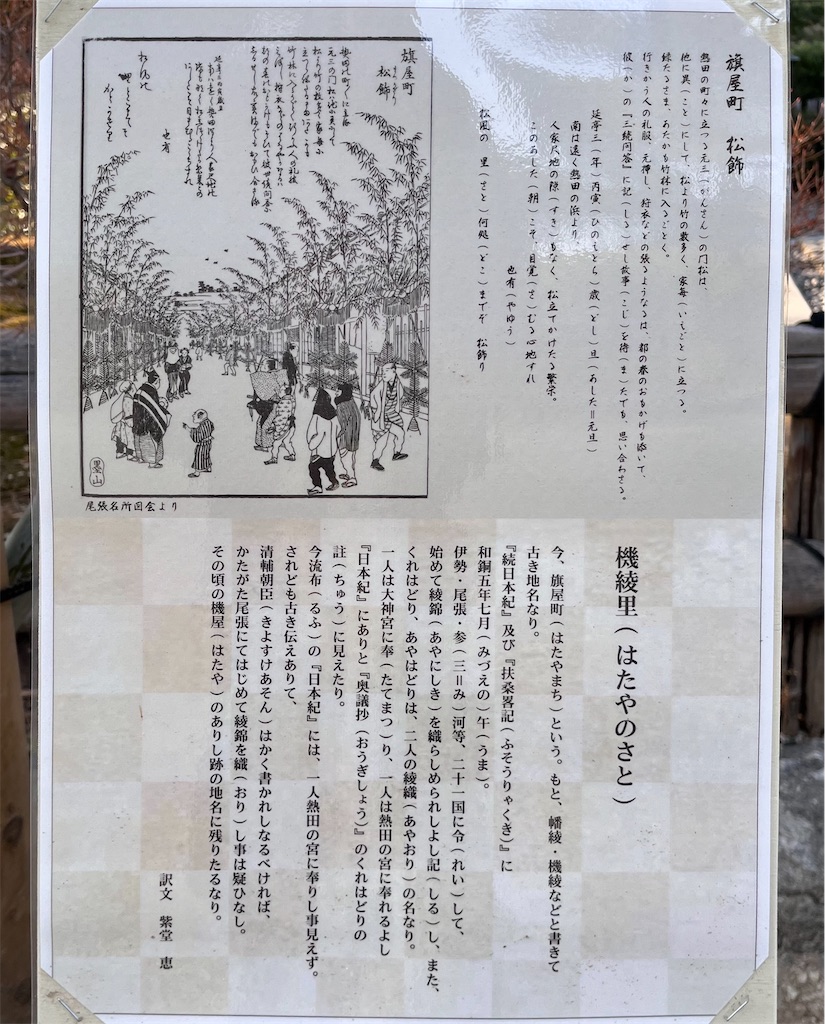 旗屋町　松飾
熱田の町々に立つる元三(がんさん)の門松は、
他に異(こと)にして、松より竹の数多く、家毎(いえごと)に立つる。
緑たるさま、あたかも竹林に入るごとく。
行きかう人の礼服、元揮し、狩衣などの張るようなるは、都の春のおもかげも添いて、
彼(か)の『三統問答』に記(しる)せし故事(こじ)を待(ま)たでも、思い合わさる。
延享三(年)丙寅(ひのえとら)歳(とし)旦(あした=元旦)
南は遠く熱田の浜より
人家尺地の隙(すき)もなく、松立てかけたる繁栄。
このあした(朝)こそ、目覚(さ)むる心地すれ
也有(やゆう)
松風の　里(さと)何処(どこ)までぞ　松飾り
旗屋町
松飾
也有
墨山
尾張名所図会より
機綾里(はたやのさと)
今、旗屋町(はたやまち)という。もと、幡綾・機綾などと書きて
古き地名なり。
『続日本紀』及び『扶桑畧記(ふそうりゃくき)』に
和銅五年七月(みづえの)午(うま)。
伊勢・尾張・参(三=み)河等、二十一国に令(れい)して、
始めて綾錦(あやにしき)を織らしめられしよし記(しる)し、また、
くれはどり、あやはどりは、二人の綾織(あやおり)の名なり。
一人は大神宮に奉(たてまつ)り、一人は熱田の宮に奉れるよし
『日本紀』にありと『奥議抄(おうぎしょう)』のくれはどりの
註(ちゅう)に見えたり。
今流布(るふ)の『日本紀』には、一人熱田の宮に奉りし事見えず。
されども古き伝えありて、
清輔朝臣(きよすけあそん)はかく書かれしなるべければ、
かたがた尾張にてはじめて綾錦を織(おり)し事は疑ひなし。
その頃の機屋(はたや)のありし跡の地名に残りたるなり。
訳文　紫堂　恵